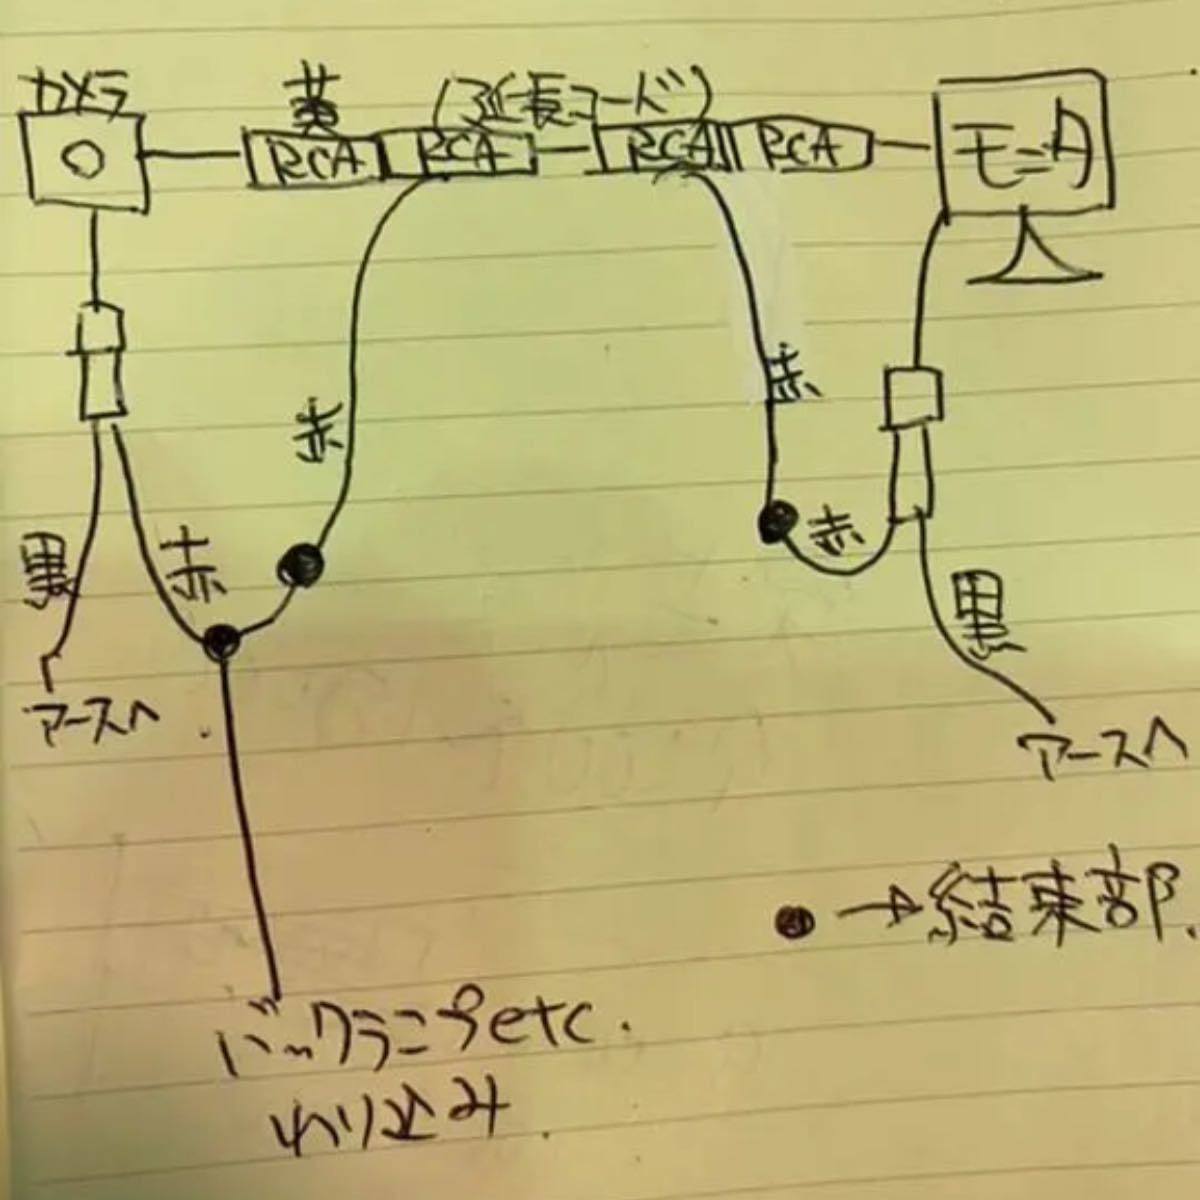 カメラ
黄
(延長コード)
RCA
RCA
RCA
RCA
モニタ
赤
赤
赤
赤
黒
黒
アースへ
アースへ
● → 結束部.
バックランプetc.
わり込み.